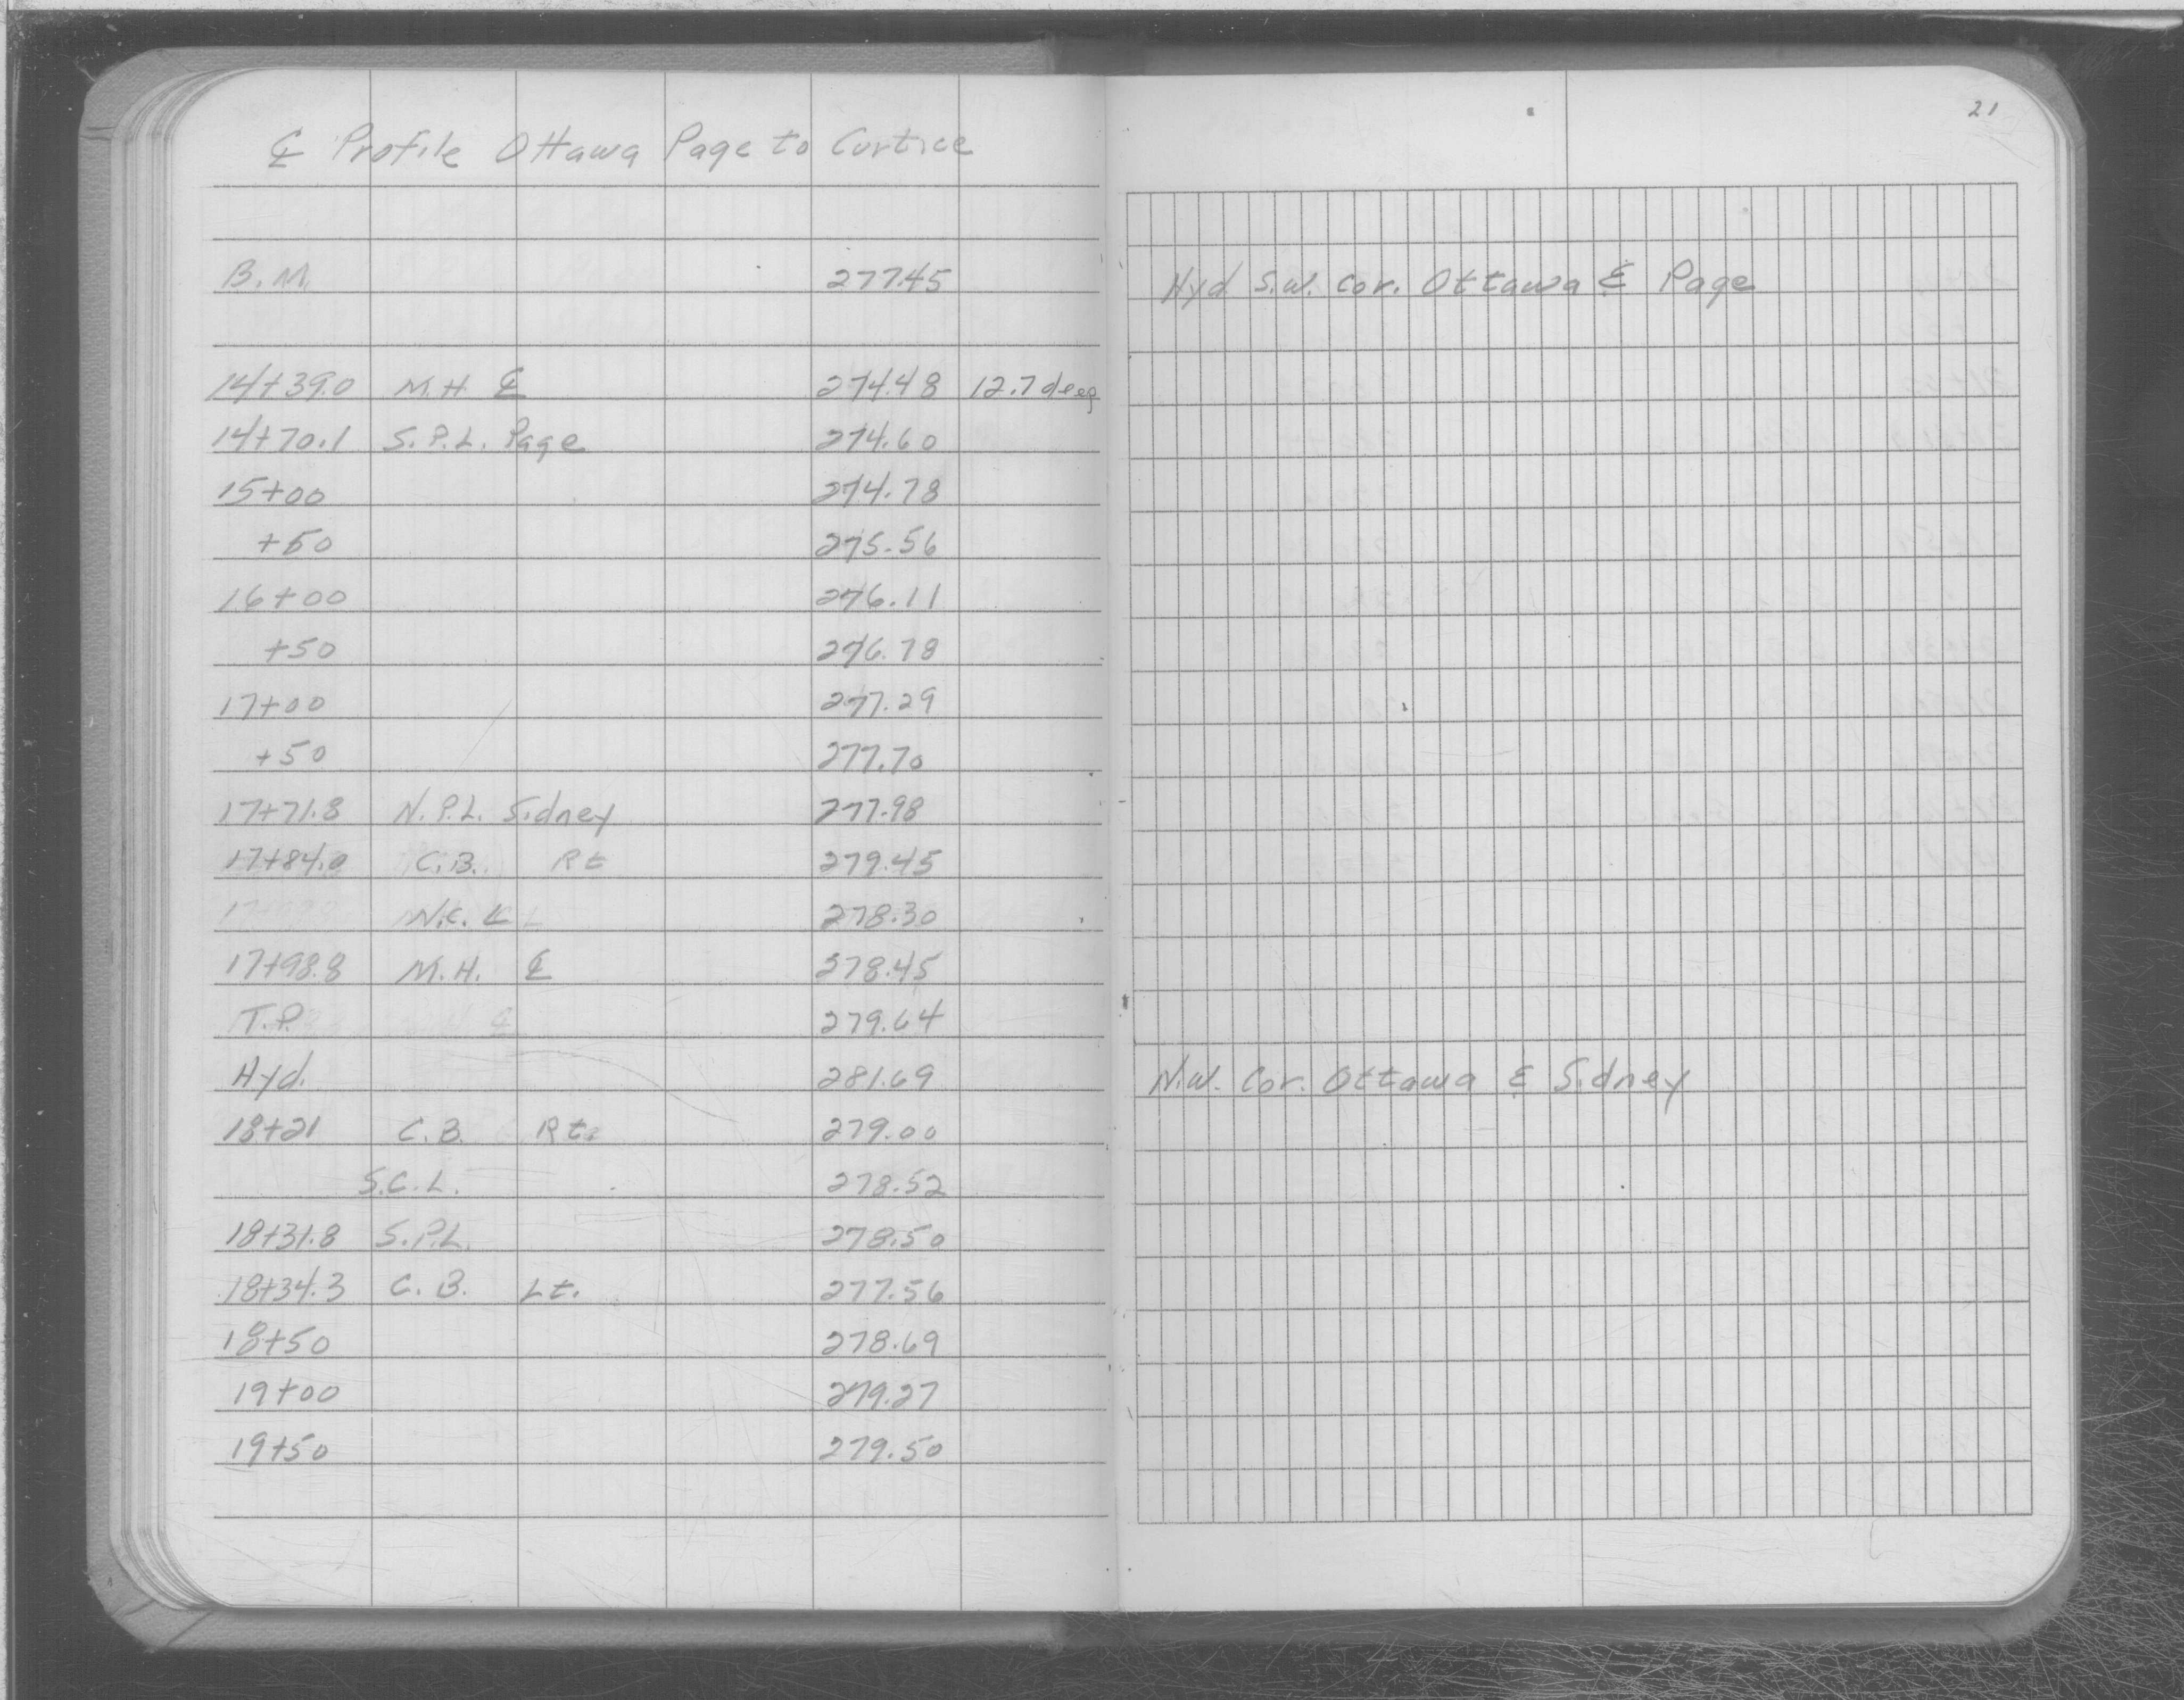 21
℄ Profile Ottawa Page to Curtice
B.M. 277.45 Hyd S.W. Cor. Ottawa & Page
14+39.0 M.H. ℄ 274.48 12.7 deep
14+70.1 S.P.L. Page 274.60
15+00 274.78
+50 275.56
16+00 276.11
+50 276.78
17+00 277.29
+50 277.70
17+71.8 N.P.L. Sidney 277.98
17+84.0 C.B. Rt 279.45
N.C. L 278.30
17+98.8 M.H. ℄ 278.45
T.P. 279.64
Hyd. 281.69 N.W. Cor. Ottawa & Sidney
18+21 C.B. Rt. 279.00
S.C.L. 278.52
18+31.8 S.P.L. 278.50
18+34.3 C.B. Lt. 277.56
18+50 278.69
19+00 279.27
19+50 279.50